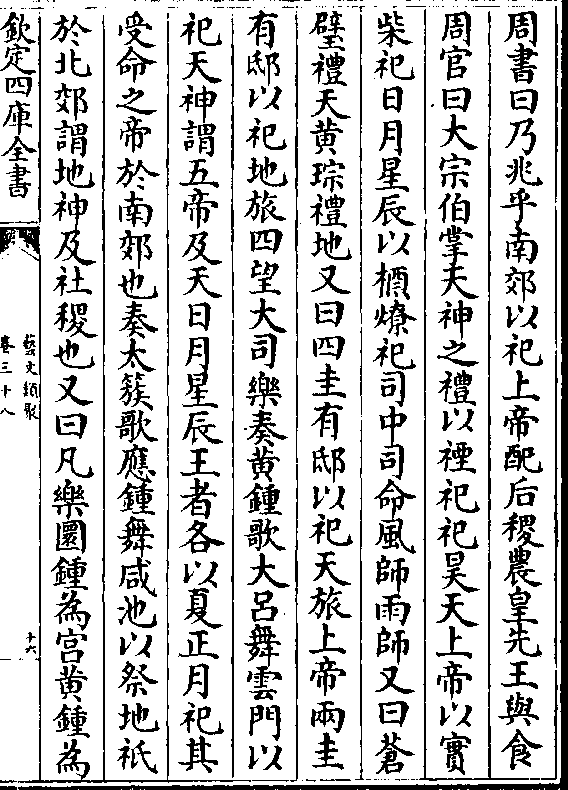 周書曰乃兆乎南郊以祀上帝配后稷農皇先王與食
周官曰大宗伯掌天神之禮以禋祀祀昊天上帝以實
柴祀日月星辰以槱燎祀司中司命風師雨師又曰蒼
璧禮天黄琮禮地又曰四圭有邸以祀天旅上帝兩圭
有邸以祀地旅四望大司樂奏黄鍾歌大呂舞雲門以
祀天神謂五帝及天日月星辰王者各以夏正月祀其
受命之帝於南郊也奏太簇歌應鍾舞咸池以祭地祇
於北郊謂地神及社稷也又曰凡樂圜鍾為宫黄鍾為
欽定四庫全書
藝文類聚
卷三十八
十六